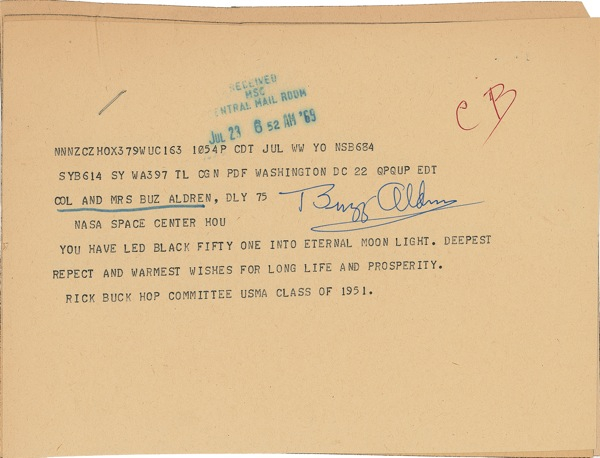 RECEIVED
MSC
CENTRAL MAIL ROOM
JUL 23 6 52 AM '69
CB
NNNZCZHOX379WUC163 1054P CDT JUL WW YO NSB684
SYB614 SY WA397 TL CGN PDF WASHINGTON DC 22 QPQUP EDT
COL AND MRS BUZ ALDREN, DLY 75
Buzz Aldrin
NASA SPACE CENTER HOU
YOU HAVE LED BLACK FIFTY ONE INTO ETERNAL MOON LIGHT. DEEPEST
REPECT AND WARMEST WISHES FOR LONG LIFE AND PROSPERITY.
RICK BUCK HOP COMMITTEE USMA CLASS OF 1951.